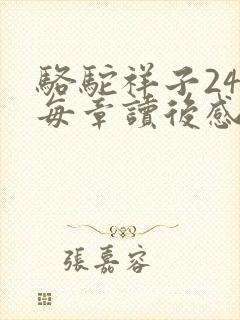 駱駝祥子24
每章讀後感
張嘉容